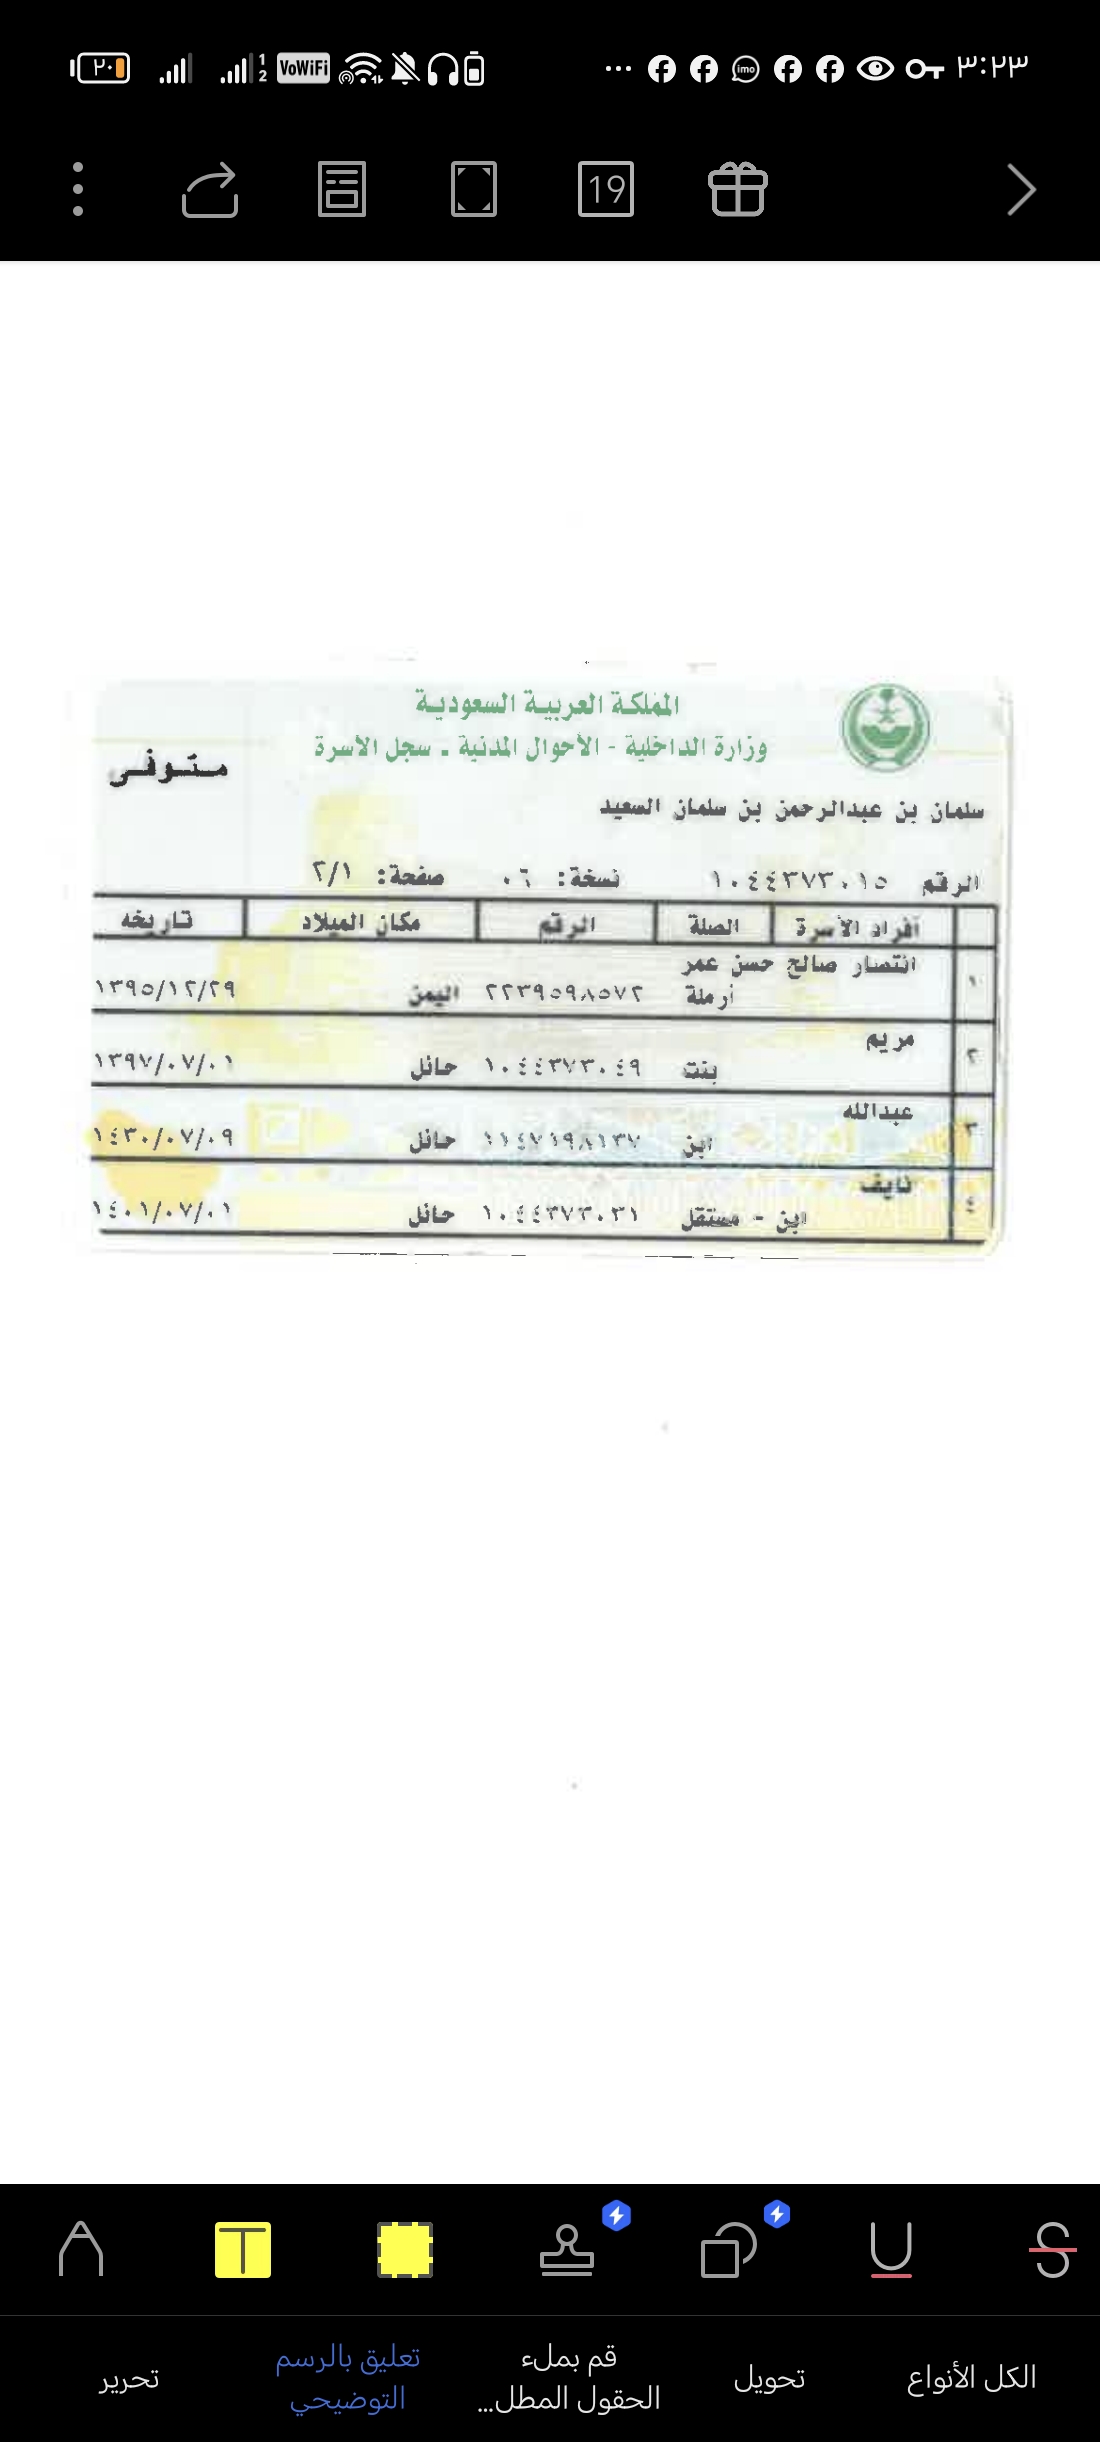 ٣:٢٣
VoWiFi
٢٠
imo
19
المملكة العربية السعودية
وزارة الداخلية - الأحوال المدنية ـ سجل الأسرة
متوفى
سلمان بن عبدالرحمن بن سلمان السعيد
الرقم ١٠٤٤٣٧٣٠١٥ نسخة: ٠٦ صفحة: ٢/١
أفراد الأسرة الصلة الرقم مكان الميلاد تاريخه
١ انتصار صالح حسن عمر
أرملة ٢٢٣٩٥٩٨٥٧٢ اليمن ١٣٩٥/١٢/٢٩
٢ مريم
بنت ١٠٤٤٣٧٣٠٤٩ حائل ١٣٩٧/٠٧/٠١
٣ عبدالله
ابن ١١٤٧١٩٨١٣٧ حائل ١٤٣٠/٠٧/٠٩
٤ نايف
ابن - مستقل ١٠٤٤٣٧٣٠٣١ حائل ١٤٠١/٠٧/٠١
الكل الأنواع
تحويل
قم بملء
الحقول المطل...
تعليق بالرسم
التوضيحي
تحرير